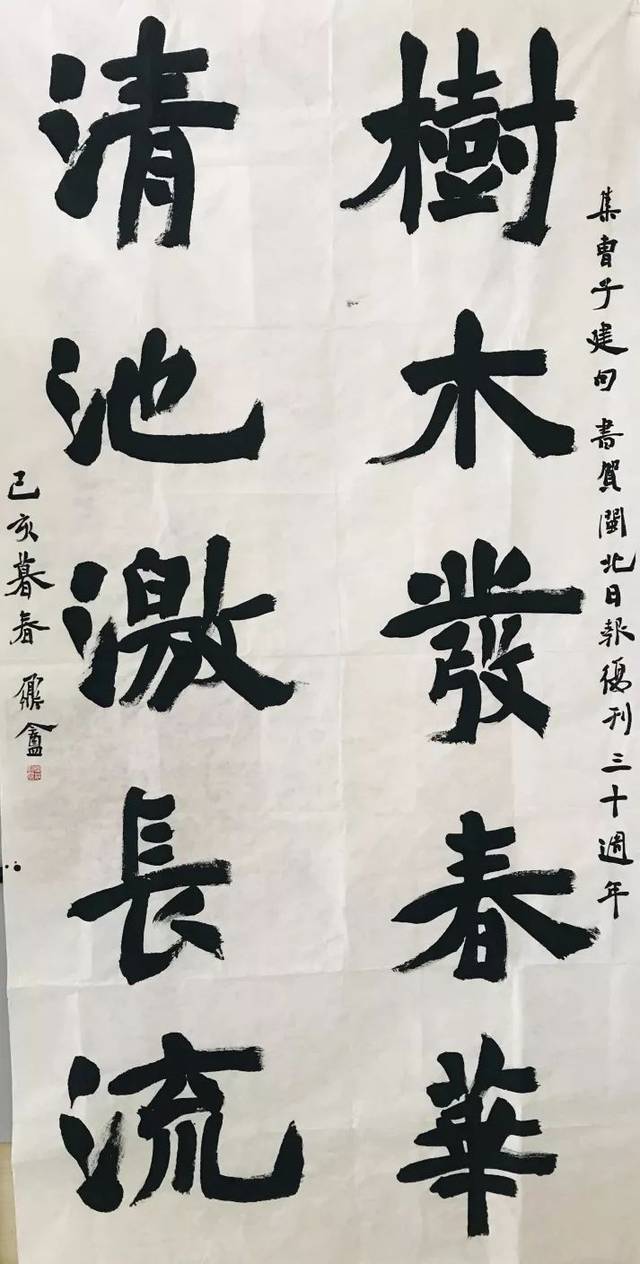 集曹子建句 書賀閩北日報復刊三十週年
樹木發春華
清池激長流
己亥暮春 鼎龕